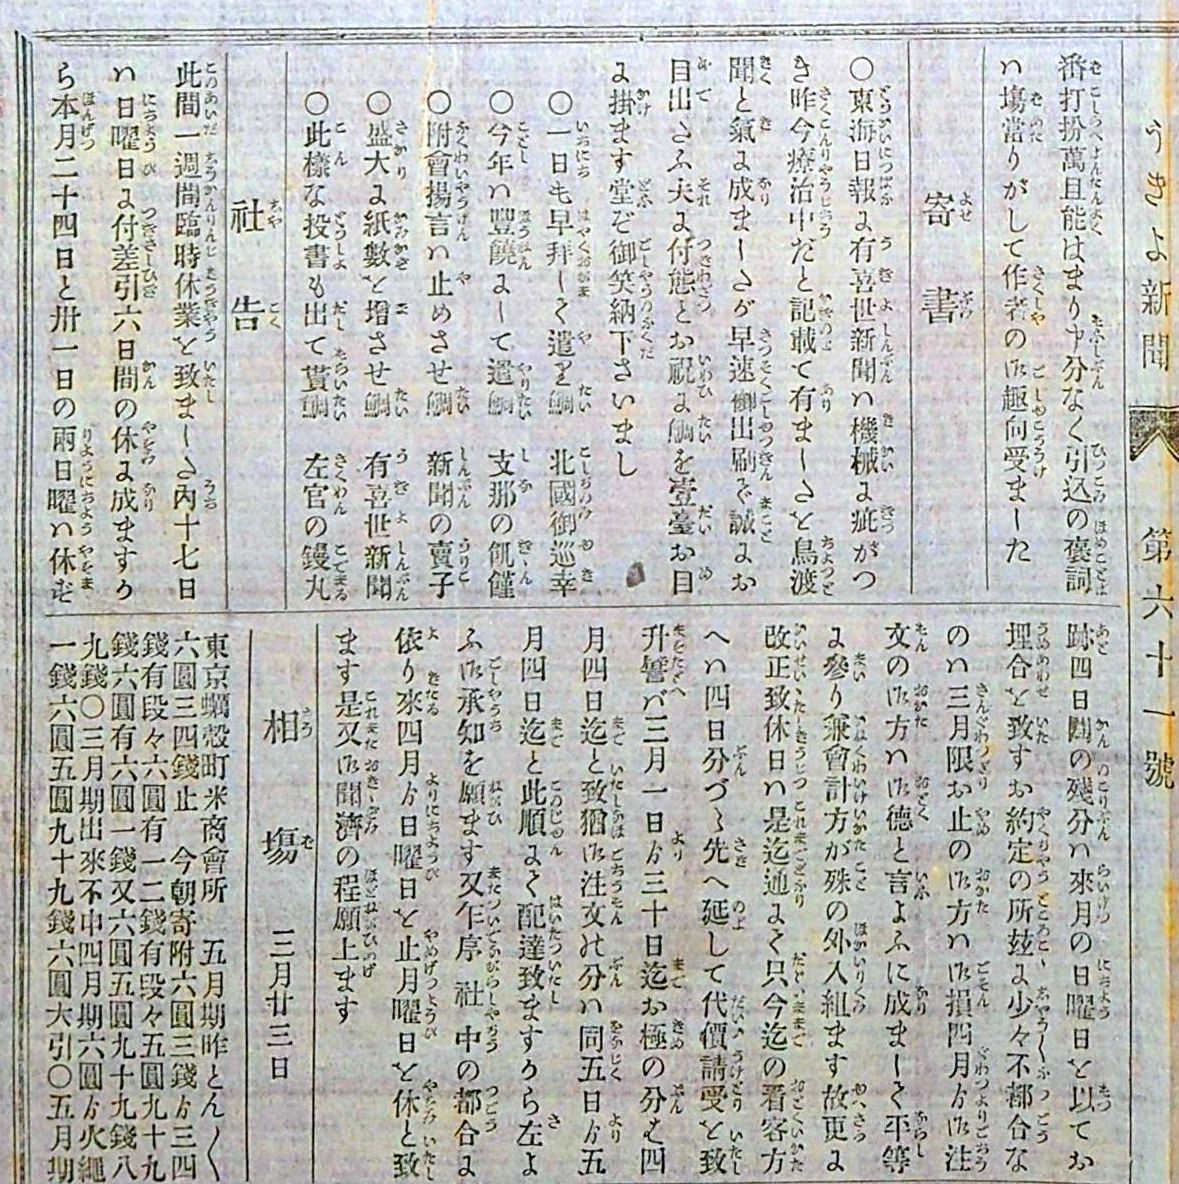 うきよ新聞 第六十一號
番打扮萬且能はまり中分なく引込の褒詞
ハ塲當りがして作者の御趣向受ました
寄書
〇東海日報よ有喜世新聞ハ機械よ疵がつ
き昨今療治中だと記載て有ましたと鳥渡
聞と氣よ成ましたが早速御出刷で誠よお
目出たふ夫よ付態とお祝よ鯛を壹臺お目
よ掛ます堂ぞ御笑納下さいまし
〇一日も早拜しく遣を鯛 北國御巡幸
〇今年ハ豐饒よして遣鯛 支那の飢饉
〇附會揚言ハ止めさせ鯛 新聞の賣子
〇盛大よ紙數と増させ鯛 有喜世新聞
〇此樣な投書も出て貰鯛 左官の鏝丸
社告
此間一週間臨時休業と致ました内十七日
ハ日曜日よ付差引六日間の休よ成ますか
ら本月二十四日と卅一日の兩日曜ハ休まぞ
跡四日間の残分ハ來月の日曜日と以てお
埋合と致すお約定の所玆よ少々不都合な
のハ三月限お止の御方ハ御損四月ゟ御注
文の御方ハ御德と言よふに成ましく平等
よ參り兼會計方が殊の外入組ます故更よ
改正致休日ハ是迄通よく只今迄の看客方
へハ四日分づゝ先へ延して代價請受と致
升譬バ三月一日ゟ三十日迄お極の分も四
月四日迄と致猶御注文の分ハ同五日ゟ五
月四日迄と此順よく配達致ますから左よ
ふ御承知を願ます又乍序 社中の都合よ
依り來四月ゟ日曜日と止月曜日と休と致
ます是又御聞濟の程願上ます
相塲 三月廿三日
東京蠣殻町米商會所 五月期昨とん〱
六圓三四錢止 今朝寄附六圓三錢ゟ三四
錢有段々六圓有一二錢有段々五圓九十九
錢六圓有六圓一錢又六圓五圓九十九錢八
九錢〇三月期出來不申四月期六圓ゟ火繩
一錢六圓五圓九十九錢六圓大引〇五月期